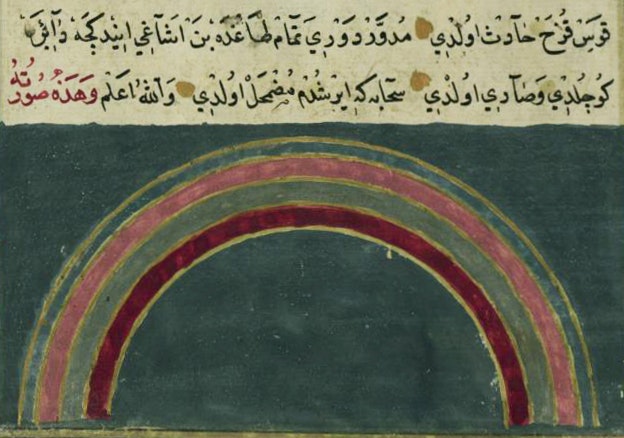 قوس قزح حادث اولدي مدور دوري تمام طاغده بن اشاغي ايندكجه دآئره
كوجلدي وصآري اولدي سحابه كه ايرشدم مضمحل اولدي والله اعلم وهذه صورته